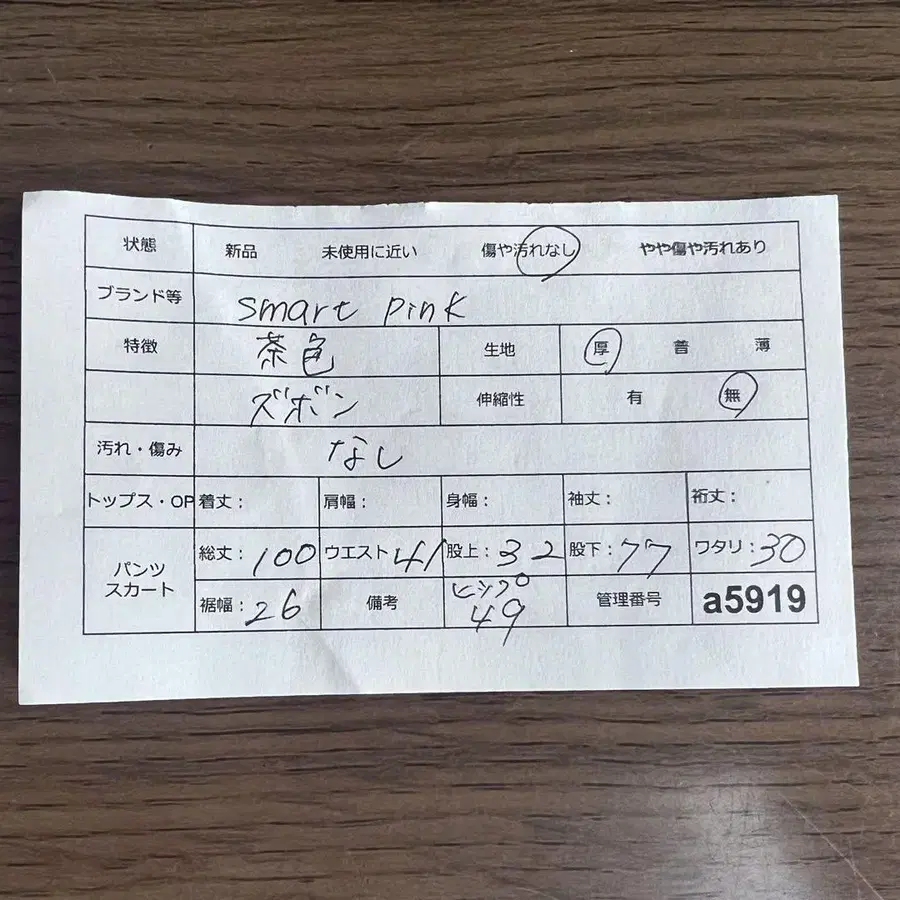 状態 新品 未使用に近い 傷や汚れなし やや傷や汚れあり
ブランド等 smart pink
特徴 茶色 生地 厚 普 薄
ズボン 伸縮性 有 無
汚れ・傷み なし
トップス・OP 着丈: 肩幅: 身幅: 袖丈: 裄丈:
パンツ スカート 総丈:100 ウエスト41 股上:32 股下:77 ワタリ:30
裾幅:26 備考 ヒップ 49 管理番号 a5919